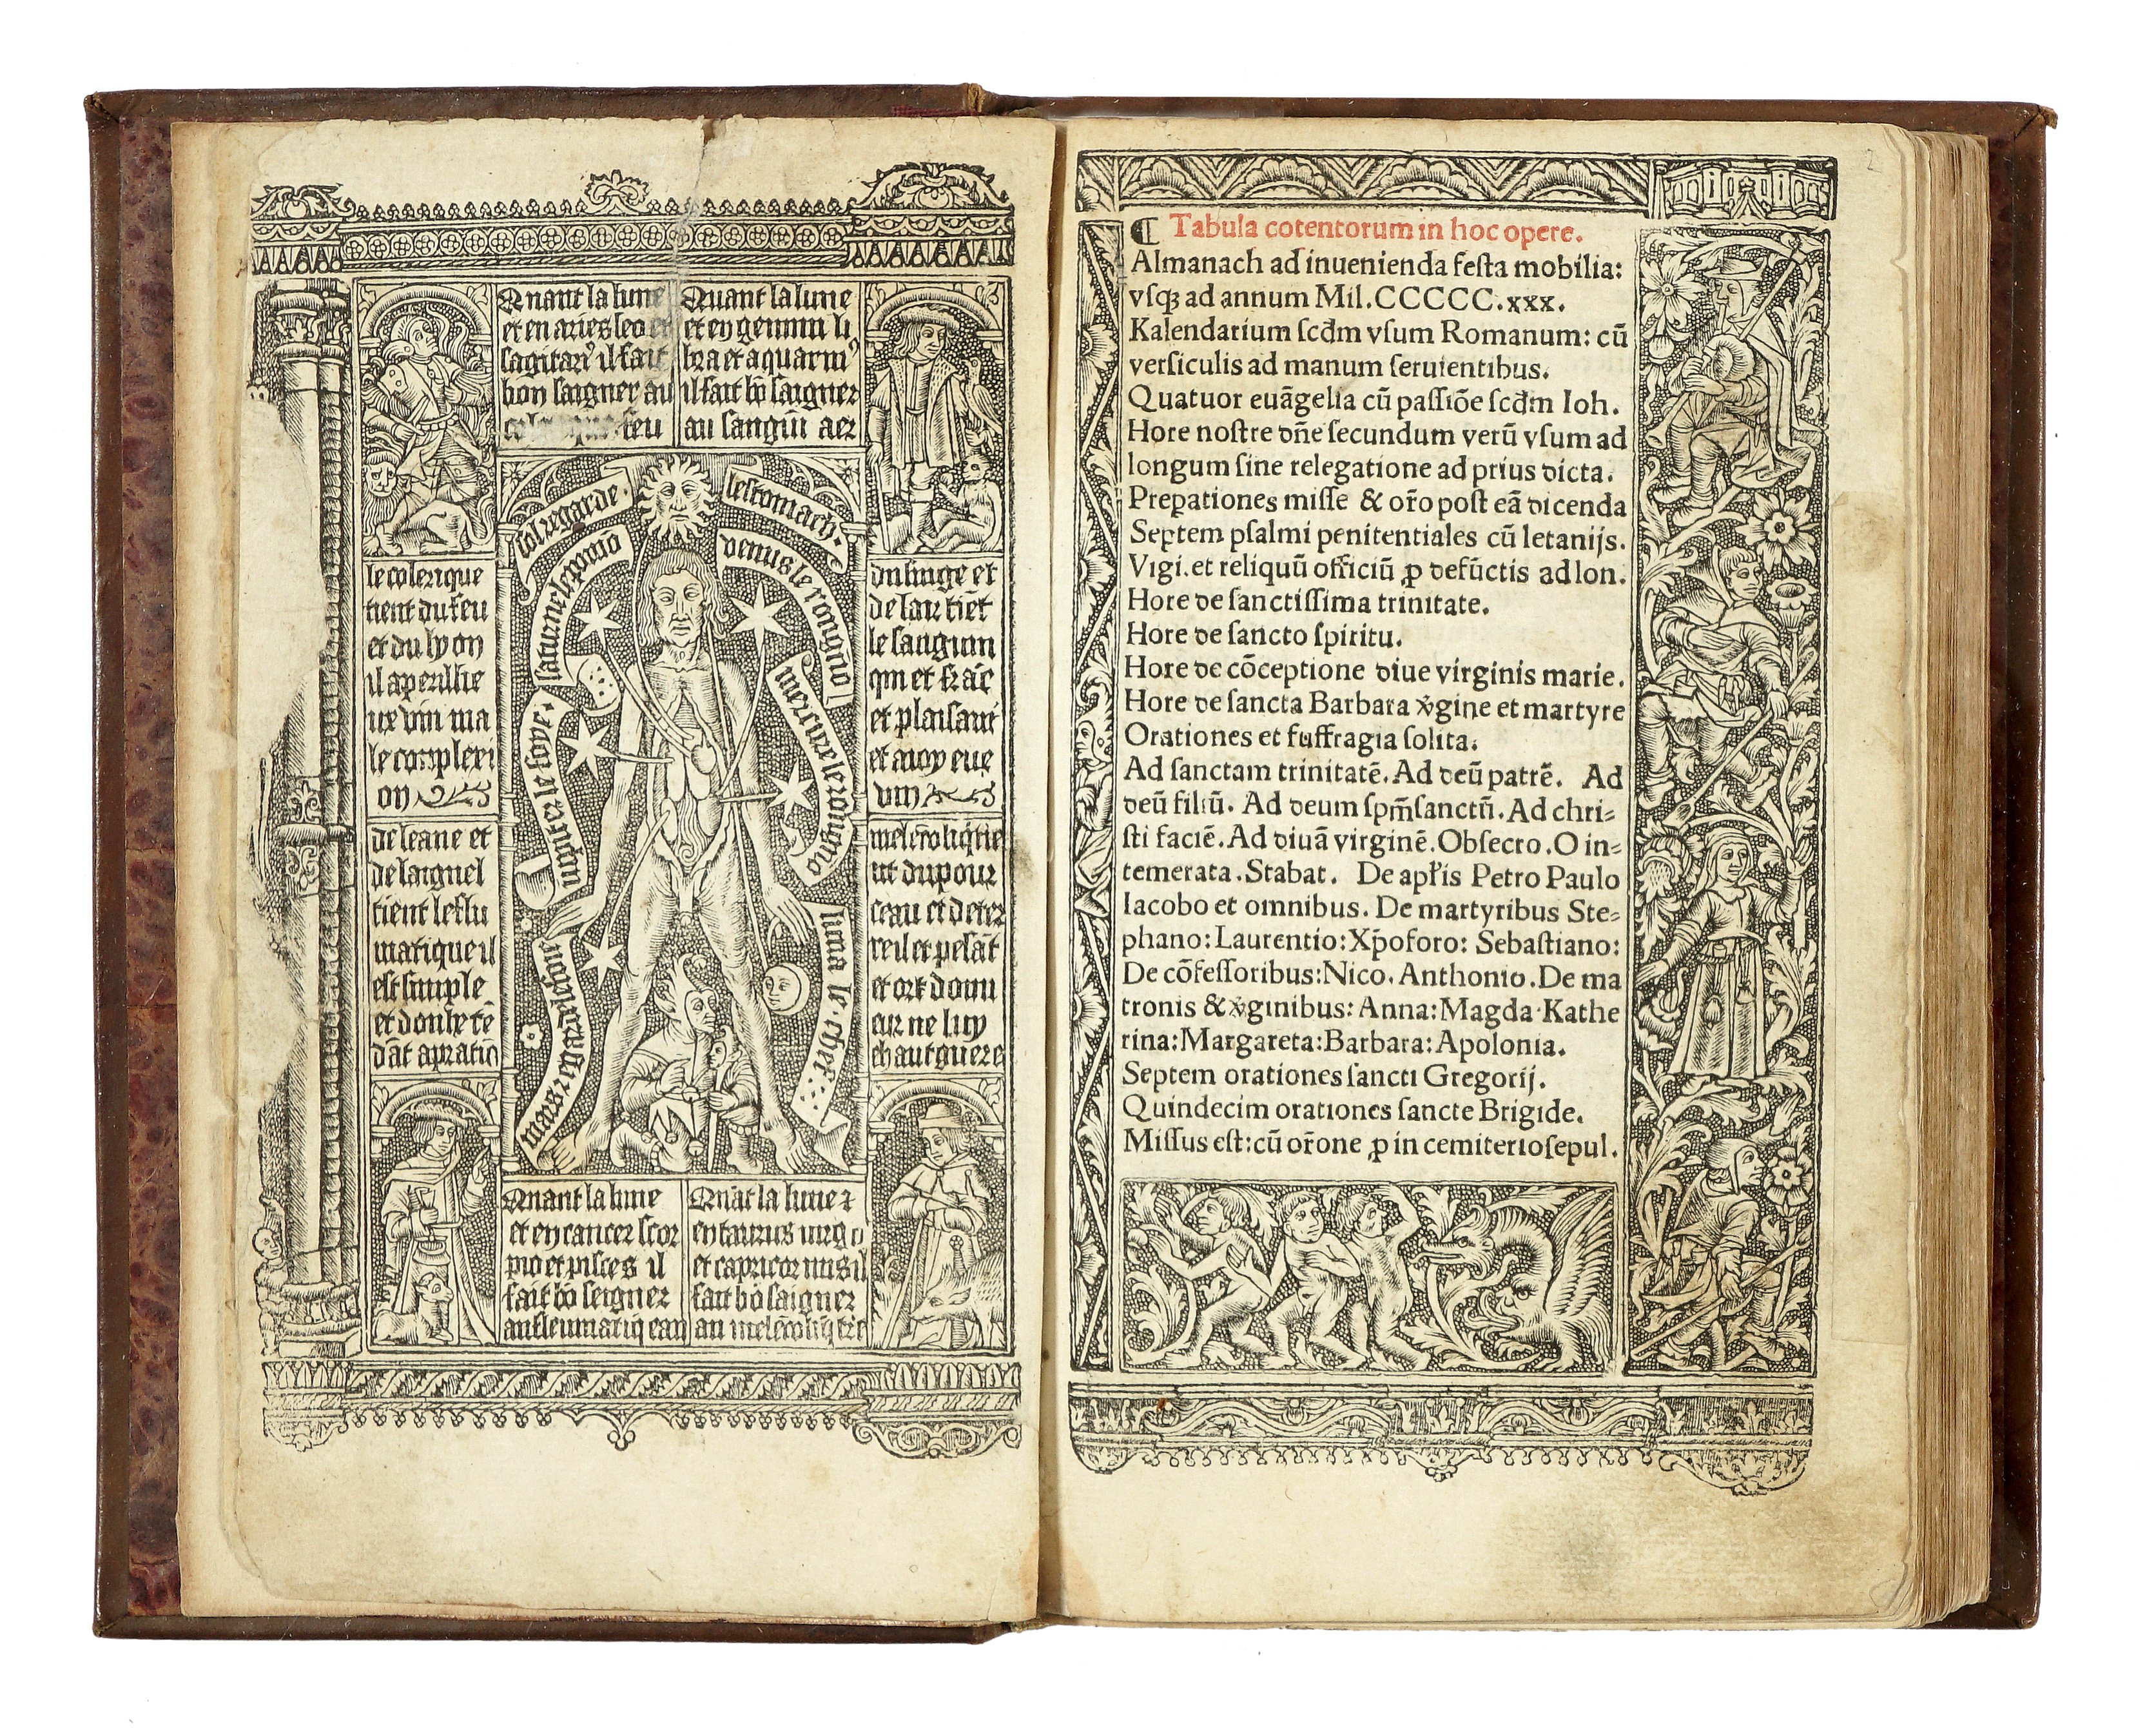 Quant la lune
et en aries leo et
sagitari9 il fait
bon saigner au
feu
Quant la lune
et en gemini li
bra et aquarui9
il fait bõ saigner
au sanguĩ aer
le colerique
tient du feu
et du lyon
il a perillie
ux vin ma
le complexi
on
du singe et
de lair tiẽt
le sanguin
qui et frãc
et plaisant
et a ioyeue
vin
sol regarde
lestomach
saturne le pomo
venus le rongno
iupiter le foye
mercure le rongno
mars regarde le fome
luna le chef
de leane et
de laignel
tient le fleu
matique il
est simple
et doulx tẽ
dãt a pratiq
melẽcoliq̃ tie
nt du pour
ceau et de ter
re il et pesãt
et ort donn
eur ne luy
chaut guere
Quant la lune
et en cancer scor
pio et pisces il
fait bõ seigner
au fleumatiq̃ eau
Quãt la lune ⁊
en taurus virgo
et capricornus il
fait bõ saigner
au melẽcoliq̃ t̃re
2
¶ Tabula cotentorum in hoc opere.
Almanach ad inuenienda festa mobilia:
vsqꝫ ad annum Mil.CCCCC.xxx.
Kalendarium scd̃m vsum Romanum: cũ
versiculis ad manum seruientibus.
Quatuor euãgelia cũ passiõe scd̃m Ioh.
Hore nostre dñe secundum verũ vsum ad
longum sine relegatione ad prius dicta.
Prepationes misse & or̃o post eã dicenda
Septem psalmi penitentiales cũ letanijs.
Vigi.et reliquũ officiũ ꝓ defũctis ad lon.
Hore de sanctissima trinitate.
Hore de sancto spiritu.
Hore de cõceptione diue virginis marie.
Hore de sancta Barbara v̾gine et martyre
Orationes et suffragia solita.
Ad sanctam trinitatẽ. Ad deũ patrẽ. Ad
deũ filiũ. Ad deum sp̃m sanctũ. Ad chri-
sti faciẽ. Ad diuã virginẽ. Obsecro. O in-
temerata. Stabat. De apl̃is Petro Paulo
Iacobo et omnibus. De martyribus Ste-
phano: Laurentio: Xp̃oforo: Sebastiano:
De cõfessoribus: Nico. Anthonio. De ma
tronis & v̾ginibus: Anna: Magda Kathe
rina: Margareta: Barbara: Apolonia.
Septem orationes sancti Gregorij.
Quindecim orationes sancte Brigide.
Missus est: cũ or̃one ꝓ in cemiterio sepul.